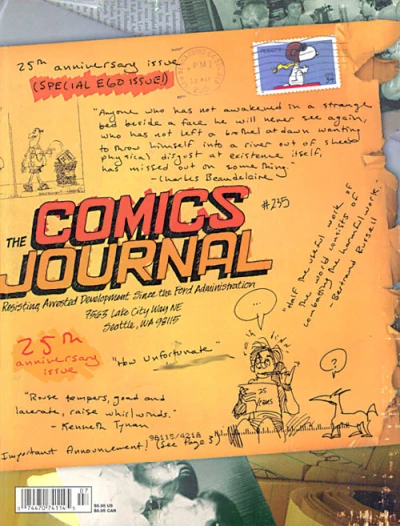 25th anniversary issue
(SPECIAL EGO ISSUE!)
PM
PEANUTS
34
"Anyone who has not awakened in a strange
bed beside a face he will never see again,
who has not left a brothel at dawn wanting
to throw himself into a river out of sheer
physical disgust at existence itself,
has missed out on something."
- Charles Beaudelaire
#235
THE COMICS
JOURNAL
Resisting Arrested Development Since the Ford Administration
7563 Lake City Way NE
Seattle, WA 98115
"Half the useful work of
the world consists of
combating the harmful work."
- Bertrand Russell
25th
anniversary
issue
"How Unfortunate."
...
?
25
YEARS
"Rouse tempers, goad and
lacerate, raise whirlwinds."
- Kenneth Tynan
98115/4218
Important Announcement! (See Page 3)
$6.95 US
07